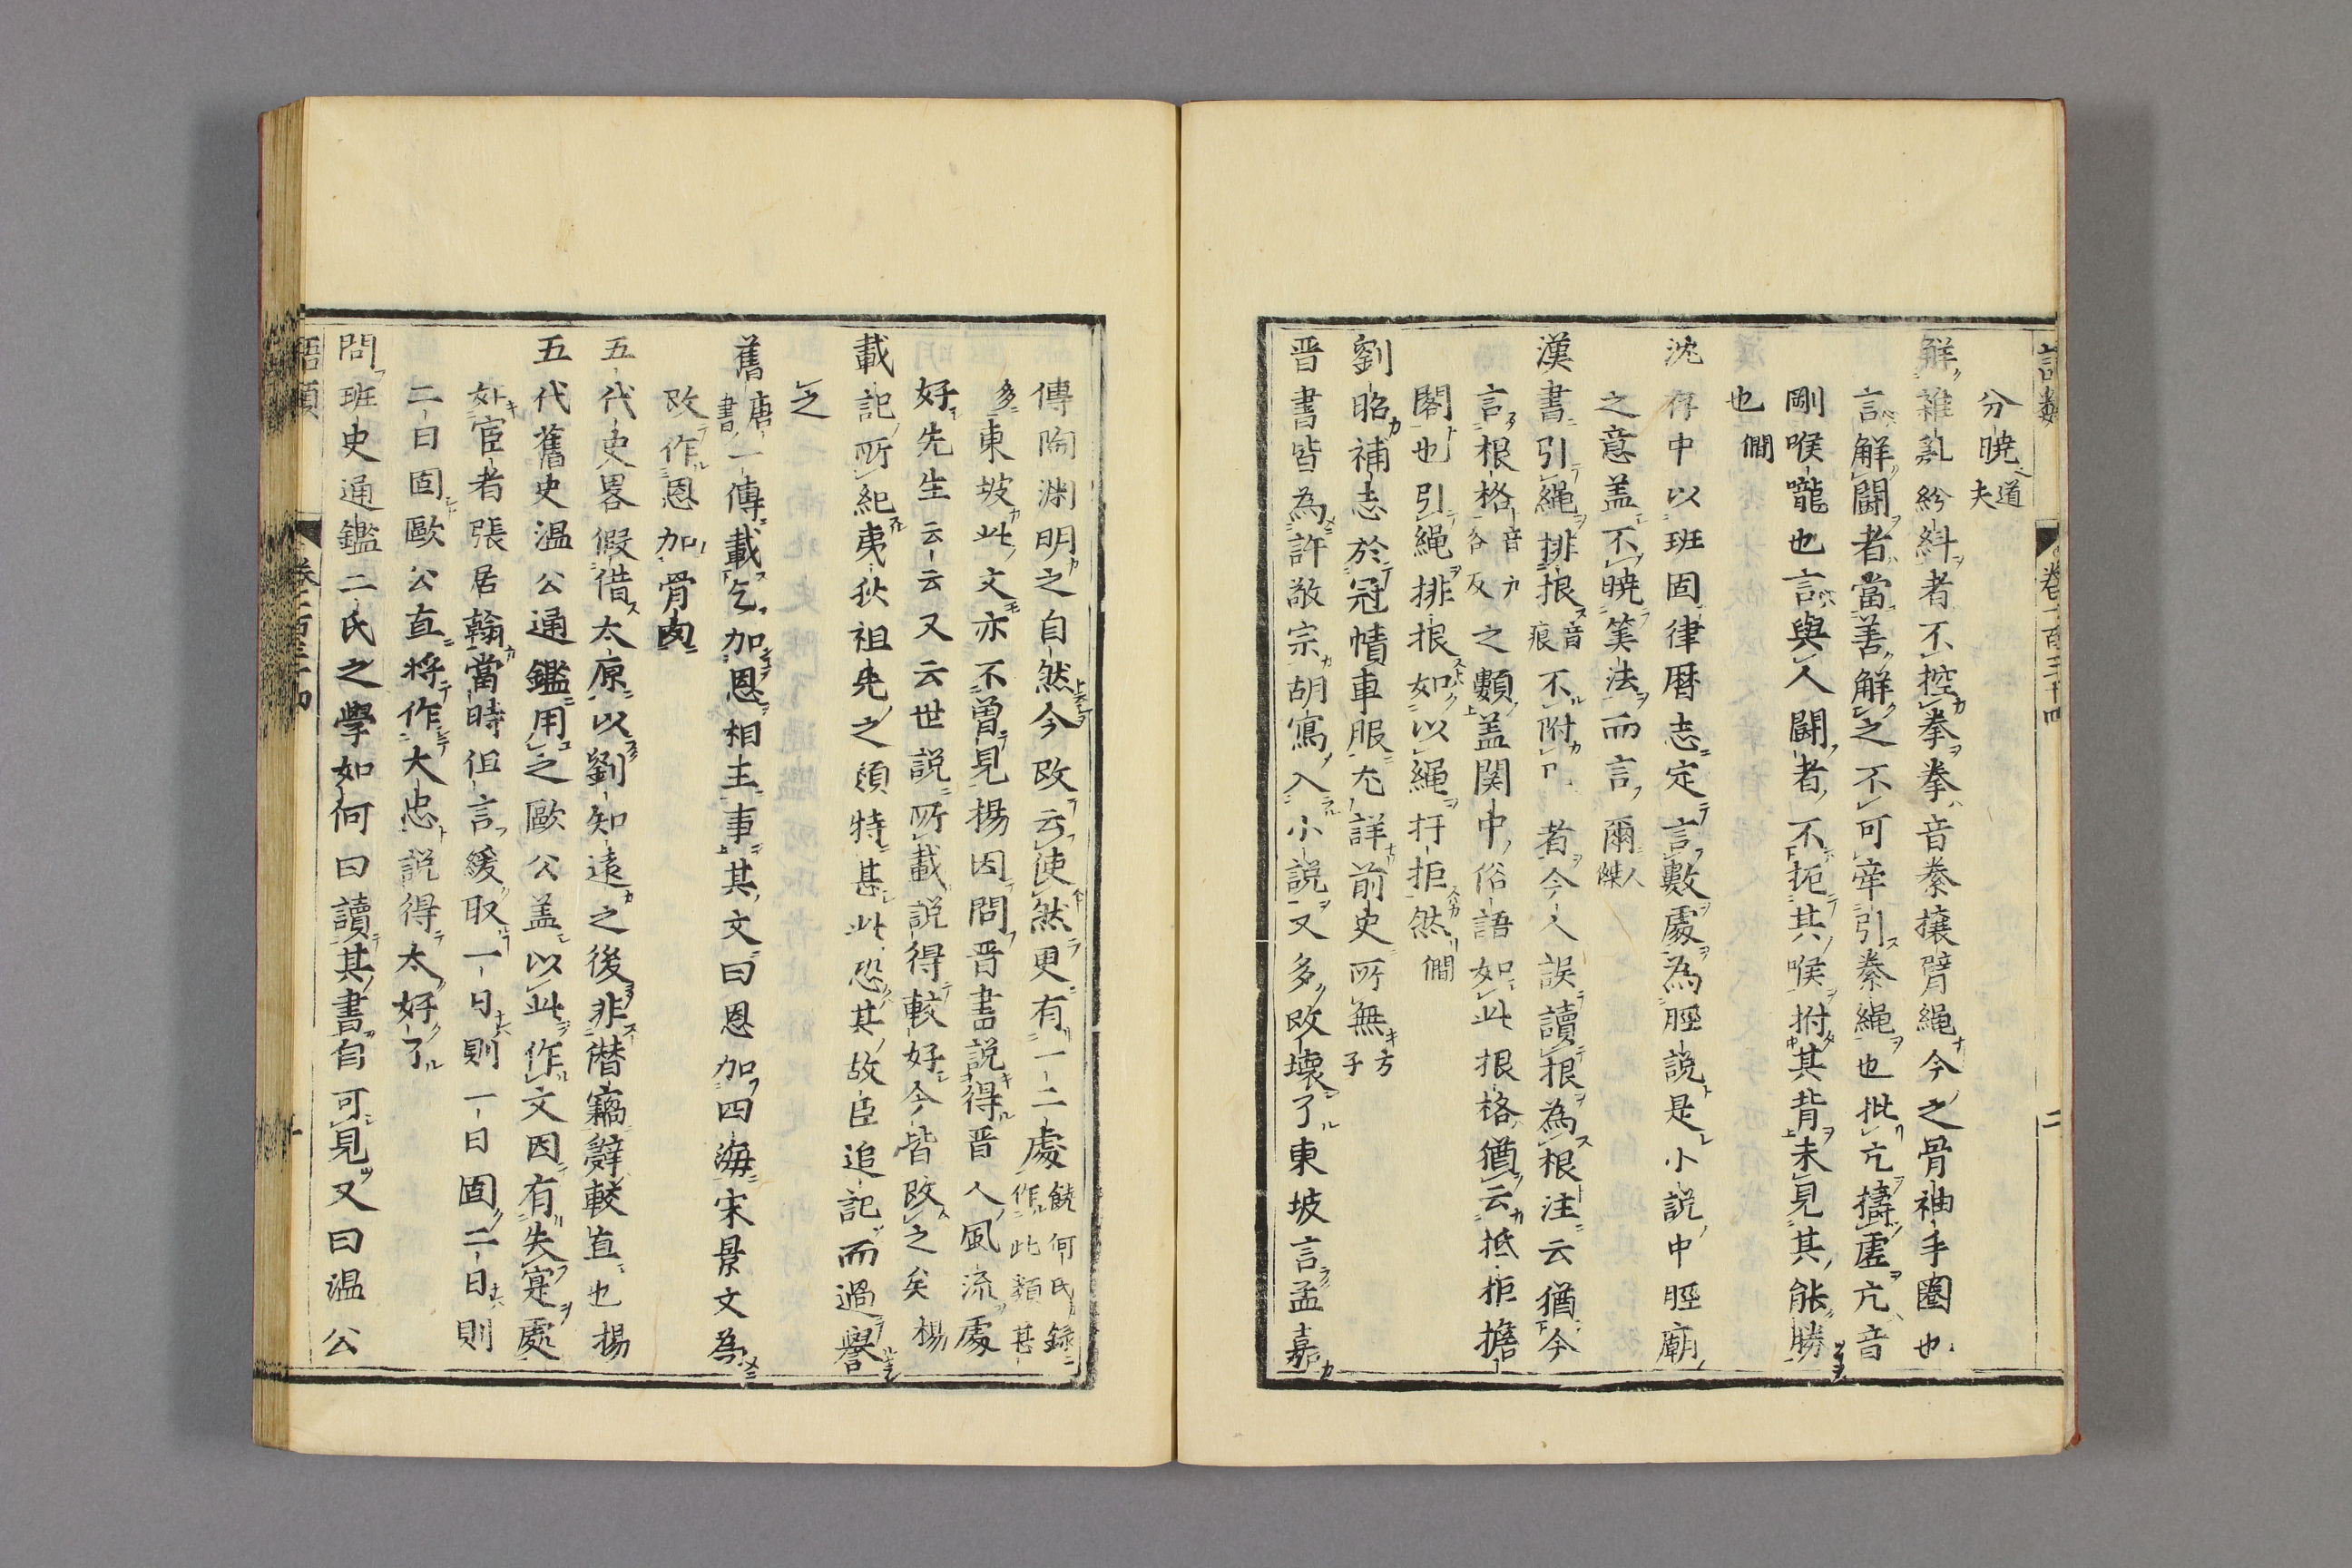 語類
卷一百三十四
二
分曉道夫
解雜亂紛糾者不控拳拳音絭攘臂繩今之骨袖手圈也
言解鬬者當善解之不可牽引絭繩也批亢擣虛亢音
剛喉嚨也言與人鬬者不扼其喉拊其背未見其能勝
也僩
沈存中以班固律曆志定言數處為脛說是小說中脛廟
之意盖不曉筭法而言爾人傑
漢書引繩排拫音痕不附者今人誤讀拫為根注云猶今
言根格音各之類盖関中俗語如此拫格猶云抵拒擔
閣也引繩排拫如以繩扞拒然僩
劉昭補志於冠幘車服尤詳前史所無方子
晋書皆為許敬宗胡寫入小說又多改壞了東坡言孟嘉
傳陶淵明之自然今改云使然更有一二處饒何氏録作此類甚
多東坡此文亦不曽見揚因問晋書說得晋人風流處
好先生云云又云世說所載說得較好今皆改之矣揚
載記所紀夷狄祖先之類特甚此恐其故臣追記而過譽
之
舊唐書一傳載乞加恩相主事其文曰恩加四海宋景文為
改作恩加骨肉
五代史畧假借太原以劉知遠之後非僭竊辭較直也揚
五代舊史温公通鑑用之歐公盖以此作文因有失寔處
如宦者張居翰當時但言緩取一日則一日固二日則
二日固歐公直將作大忠說得太好了
問班史通鑑二氏之學如何曰讀其書自可見又曰温公
語類
卷一百三十四